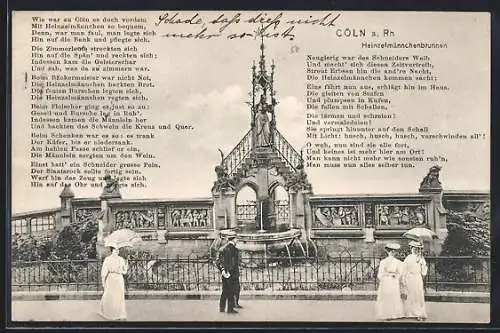 Schade, dass dies nicht
mehr so ist!
CÖLN a. Rh.
Heinzelmännchenbrunnen
Wie war zu Cöln es doch vordem
Mit Heinzelmännchen so bequem,
Denn, war man faul, man legte sich
Hin auf die Bank und pflegte sich.
Die Zimmerleute streckten sich
Hin auf die Spän' und reckten sich;
Indessen kam die Geisterschar
Und sah, was da zu zimmern war.
Beim Bäckermeister war nicht Not,
Die Heinzelmännchen backten Brot.
Die faulen Burschen legten sich,
Die Heinzelmännchen regten sich.
Beim Fleischer ging es just so zu:
Gesell und Bursche lag in Ruh'.
Indessen kamen die Männlein her
Und hackten das Schwein die Kreuz und Quer.
Beim Schenken war es so: es trank
Der Küfer, bis er niedersank.
Am hohlen Fasse schlief er ein,
Die Männlein sorgten um den Wein.
Einst hatt' ein Schneider grosse Pein,
Der Staatsrock sollte fertig sein.
Warf hin das Zeug und legte sich
Hin auf das Ohr und pflegte sich.
Neugierig war des Schneiders Weib
Und macht' sich diesen Zeitvertreib,
Streut Erbsen hin die and're Nacht,
Die Heinzelmännchen kommen sacht;
Eins fährt nun aus, schlägt hin im Haus,
Die gleiten von Stufen
Und plumpsen in Kufen,
Die fallen mit Schallen,
Die lärmen und schreien!
Und vermaledeien!
Sie springt hinunter auf den Schall
Mit Licht: husch, husch, husch, verschwinden all'!
O weh, nun sind sie alle fort,
Und keines ist mehr hier am Ort!
Man kann nicht mehr wie sonsten ruh'n,
Man muss nun alles selber tun.